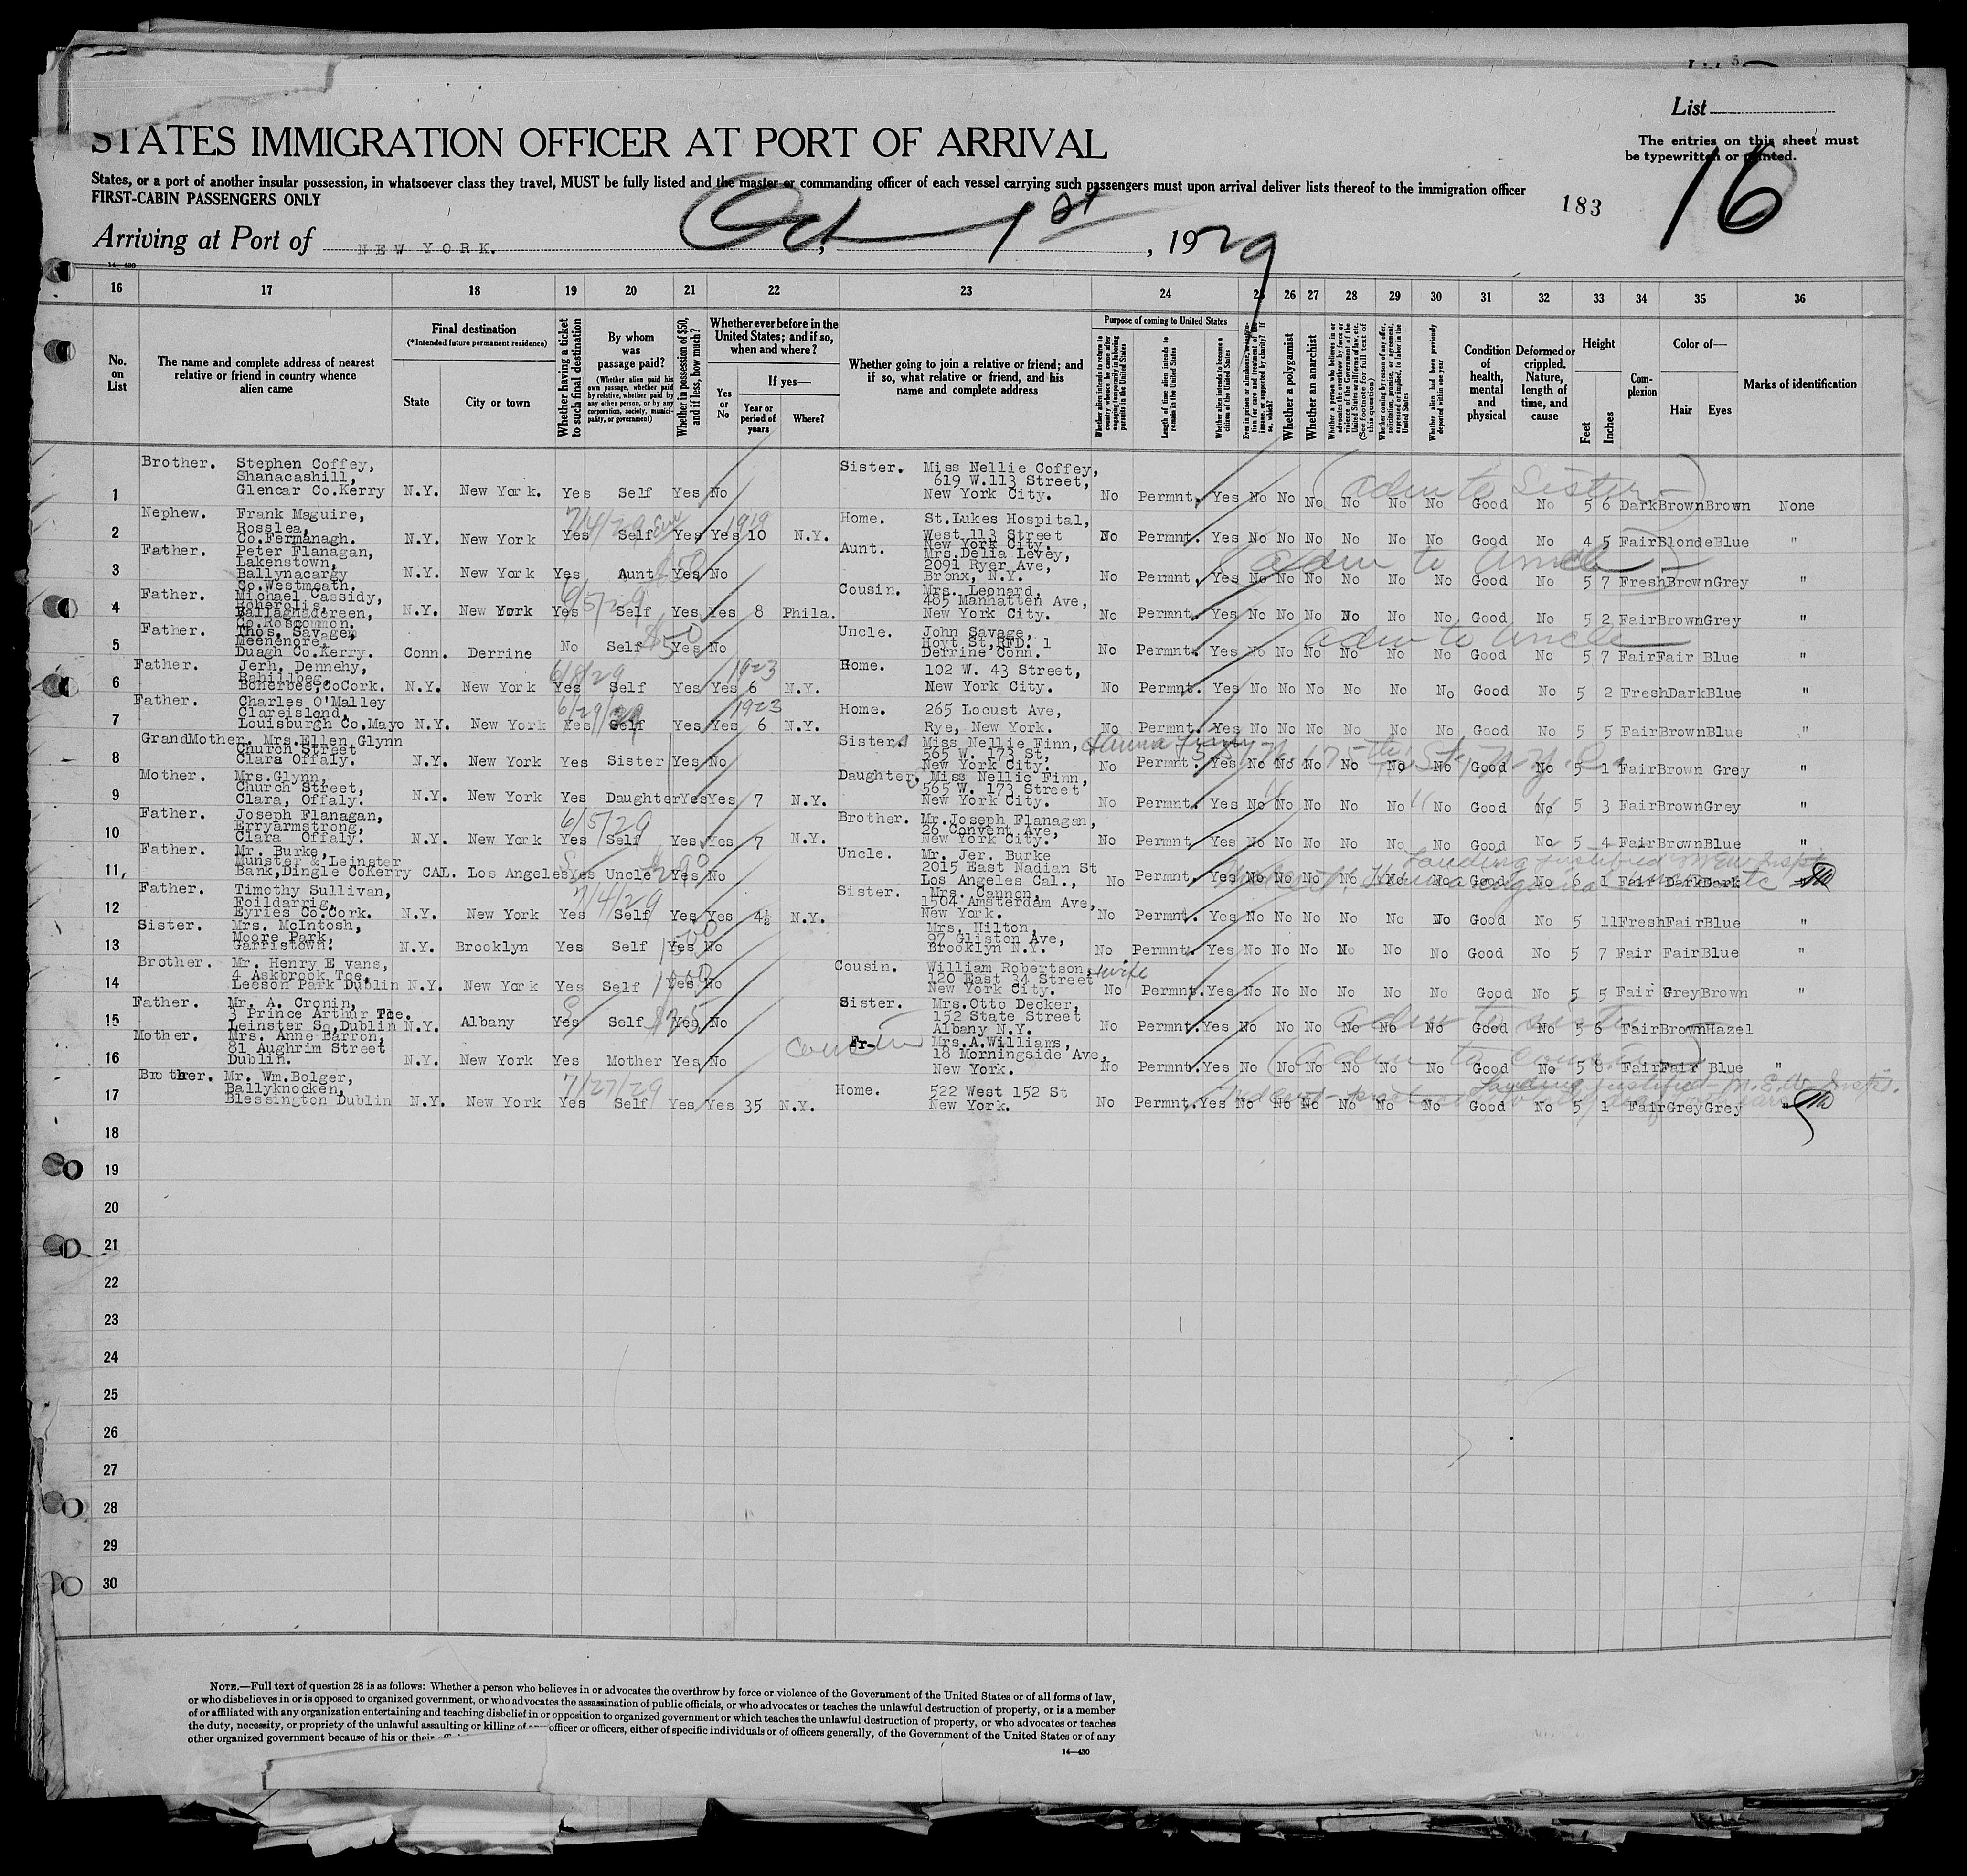 List
List
The entries on this sheet must
be typewritten or printed.
STATES IMMIGRATION OFFICER AT PORT OF ARRIVAL
States, or a port of another insular possession, in whatsoever class they travel, MUST be fully listed and the master or commanding officer of each vessel carrying such passengers must upon arrival deliver lists thereof to the immigration officer
FIRST-CABIN PASSENGERS ONLY
183
16
Arriving at Port of NEW YORK. Oct 1st, 1929
14—430
16 17 18 19 20 21 22 23 24 25 26 27 28 29 30 31 32 33 34 35 36
No. on List
The name and complete address of nearest relative or friend in country whence alien came
Final destination
(*Intended future permanent residence)
State
City or town
Whether having a ticket to such final destination
By whom was passage paid?
(Whether alien paid his own passage, whether paid by relative, whether paid by any other person, or by any corporation, society, municipality, or government)
Whether in possession of $50, and if less, how much?
Whether ever before in the United States; and if so, when and where?
Yes or No
If yes—
Year or period of years
Where?
Whether going to join a relative or friend; and if so, what relative or friend, and his name and complete address
Purpose of coming to United States
Whether alien intends to return to country whence he came after engaging temporarily in laboring pursuits in the United States
Length of time alien intends to remain in the United States
Whether alien intends to become a citizen of the United States
Whether a polygamist
Whether an anarchist
Whether alien had been previously deported within one year
Condition of health, mental and physical
Deformed or crippled. Nature, length of time, and cause
Height
Feet
Inches
Complexion
Color of—
Hair
Eyes
Marks of identification
1 Brother. Stephen Coffey, Shanacashill, Glencar Co.Kerry N.Y. New York. Yes Self Yes No Sister. Miss Nellie Coffey, 619 W.113 Street, New York City. No Permnt. Yes No No No No No No Good No 5 6 Dark Brown Brown None
(adm to Sister)
2 Nephew. Frank Maguire, Rosslea, Co.Fermanagh. N.Y. New York Yes 7/4/29 Self Yes Yes 1919 10 N.Y. Home. St.Lukes Hospital, West 113 Street New York City. No Permnt. Yes No No No No No No Good No 4 5 Fair Blonde Blue "
3 Father. Peter Flanagan, Lakenstown, Ballynacargy Co.Westmeath. N.Y. New York Yes Aunt $50 Yes No Aunt. Mrs.Delia Levey, 2091 Ryer Ave, Bronx, N.Y. No Permnt. Yes No No No No No No Good No 5 7 Fresh Brown Grey "
(adm to Uncle)
4 Father. Michael Cassidy, Ballaghadereen, Co.Roscommon. N.Y. New York Yes 6/5/29 Self Yes Yes 8 Phila. Cousin. Mrs. Leonard, 485 Manhatten Ave, New York City. No Permnt. Yes No No No No No No Good No 5 2 Fair Brown Grey "
5 Father. Thos. Savage, Meenenore, Duagh Co.Kerry. Conn. Derrine No Self $50 Yes No Uncle. John Savage, Hoyt St, RFD. 1 Derrine Conn. No Permnt. Yes No No No No No No Good No 5 7 Fair Fair Blue "
adm to Uncle
6 Father. Jerh. Dennehy, Rahillbeg, Boherbee, CoCork. N.Y. New York Yes 6/8/29 Self Yes Yes 1923 6 N.Y. Home. 102 W. 43 Street, New York City. No Permnt. Yes No No No No No No Good No 5 2 Fresh Dark Blue "
7 Father. Charles O'Malley Clareisland, Louisburgh Co.Mayo N.Y. New York Yes 6/29/29 Self Yes Yes 1923 6 N.Y. Home. 265 Locust Ave, Rye, New York. No Permnt. Yes No No No No No No Good No 5 5 Fair Brown Blue "
8 GrandMother. Mrs.Ellen Glynn Church Street Clara Offaly. N.Y. New York Yes Sister Yes No Sister. Miss Nellie Finn, 565 W. 173 St, New York City. No Permnt. Yes No No No No No No Good No 5 1 Fair Brown Grey "
9 Mother. Mrs.Glynn, Church Street, Clara, Offaly. N.Y. New York Yes Daughter Yes Yes 7 N.Y. Daughter. Miss Nellie Finn, 565 W. 173 Street New York City. No Permnt. Yes No No No No No No Good No 5 3 Fair Brown Grey "
10 Father. Joseph Flanagan, Erryarmstrong, Clara Offaly. N.Y. New York Yes 6/5/29 Self Yes Yes 7 N.Y. Brother. Mr.Joseph Flanagan, 26 Convent Ave, New York City. No Permnt. Yes No No No No No No Good No 5 4 Fair Brown Blue "
11 Father. Mr. Burke, Munster & Leinster Bank, Dingle CoKerry CAL. Los Angeles Yes Uncle Yes No Uncle. Mr. Jer. Burke 2015 East Nadian St Los Angeles Cal., No Permnt. Yes No No No No No No Good No 6 1 Fair Dark Dark
Landing justified M.E.W. Inspt.
12 Father. Timothy Sullivan, Foildarrig, Eyries Co.Cork. N.Y. New York Yes 7/4/29 Self Yes Yes 4½ N.Y. Sister. Mrs. Cannon, 1504 Amsterdam Ave, New York. No Permnt. Yes No No No No No No Good No 5 11 Fresh Fair Blue "
13 Sister. Mrs. McIntosh, Moore Park, Garristown. N.Y. Brooklyn Yes Self Yes No Mrs. Hilton, 97 Gliston Ave, Brooklyn N.Y. No Permnt. Yes No No No No No No Good No 5 7 Fair Fair Blue "
14 Brother. Mr. Henry Evans, 4 Askbrook Tce, Leeson Park Dublin N.Y. New York Yes Self Yes No Cousin. William Robertson, & wife 120 East 34 Street New York City. No Permnt. Yes No No No No No No Good No 5 5 Fair Grey Brown "
15 Father. Mr. A. Cronin, 3 Prince Arthur Tce. Leinster Sq, Dublin N.Y. Albany Yes Self $75 Yes No Sister. Mrs.Otto Decker, 152 State Street Albany N.Y. No Permnt. Yes No No No No No No Good No 5 6 Fair Brown Hazel
adm to sister
16 Mother. Mrs. Anne Barron, 81 Aughrim Street Dublin. N.Y. New York Yes Mother Yes No cousin Fr- Mrs.A.Williams, 18 Morningside Ave, New York. No Permnt. Yes No No No No No No Good No 5 8 Fair Fair Blue "
(adm to cousin)
17 Brother. Mr. Wm.Bolger, Ballyknocken, Blessington Dublin N.Y. New York Yes 7/27/29 Self Yes Yes 35 N.Y. Home. 522 West 152 St New York. No Permnt. Yes No No No No No No Good No 5 1 Fair Grey Grey "
Landing justified - M.E.W. Inspt.
18
19
20
21
22
23
24
25
26
27
28
29
30
NOTE.—Full text of question 28 is as follows: Whether a person who believes in or advocates the overthrow by force or violence of the Government of the United States or of all forms of law,
or who disbelieves in or is opposed to organized government, or who advocates the assassination of public officials, or who advocates or teaches the unlawful destruction of property, or is a member
of or affiliated with any organization entertaining and teaching disbelief in or opposition to organized government or which teaches the unlawful destruction of property, or who advocates or teaches
the duty, necessity, or propriety of the unlawful assaulting or killing of any officer or officers, either of specific individuals or of officers generally, of the Government of the United States or of any
other organized government because of his or their
14—430